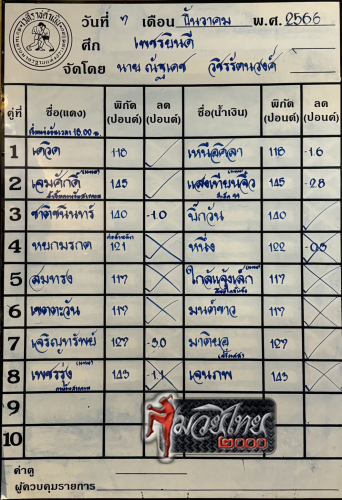 วันที่ ๗ เดือน ธันวาคม พ.ศ. 2566
ศึก เพชรยินดี
จัดโดย นาย ณัฐเดช วชิรรัตนวงศ์
คู่ที่ ชื่อ(แดง) พิกัด (ปอนด์) ลด (ปอนด์) ชื่อ(น้ำเงิน) พิกัด (ปอนด์) ลด (ปอนด์)
1 เดวิด 118 เหนือศิลา 118 -1.6
2 เจมศักดิ์ 145 แสงเทียนจิ๋ว 145 -2.8
3 ชาติชนินทร์ 140 -1.0 บิ๊กวัน 140
4 หยกมรกต 121 หนึ่ง 122 -0.5
5 สมทรง 117 ใกล้แจ้งเล็ก 117
6 เขตตะวัน 117 มนต์ขาว 117
7 เจริญทรัพย์ 127 -3.0 มาติเนซ 127
8 เพชรรุ่ง 143 -1.1 เจนภพ 143
9
10
มวยไทย
๒๐๐๐
ค่าดู
ผู้ควบคุมรายการ